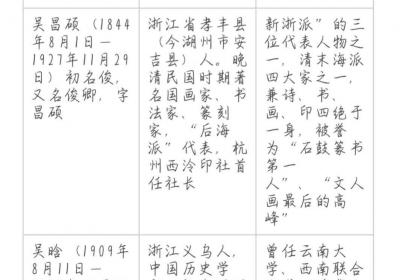 吴昌硕（1844
年8月1日—
1927年11月29
日）初名俊，
又名俊卿，字
昌硕
浙江省孝丰县
（今湖州市安
吉县）人。晚
清民国时期著
名国画家、书
法家、篆刻
家，“后海
派”代表，杭
州西泠印社首
任社长
新浙派”的三
位代表人物之
一，清末海派
四大家之一，
兼诗、书、
画、印四绝于
一身，被誉
为“石鼓篆书
第一
人”、“文人
画最后的高
峰”
吴晗（1909年
8月11日—
浙江义乌人，
中国历史学
曾任云南大
学、西南联合